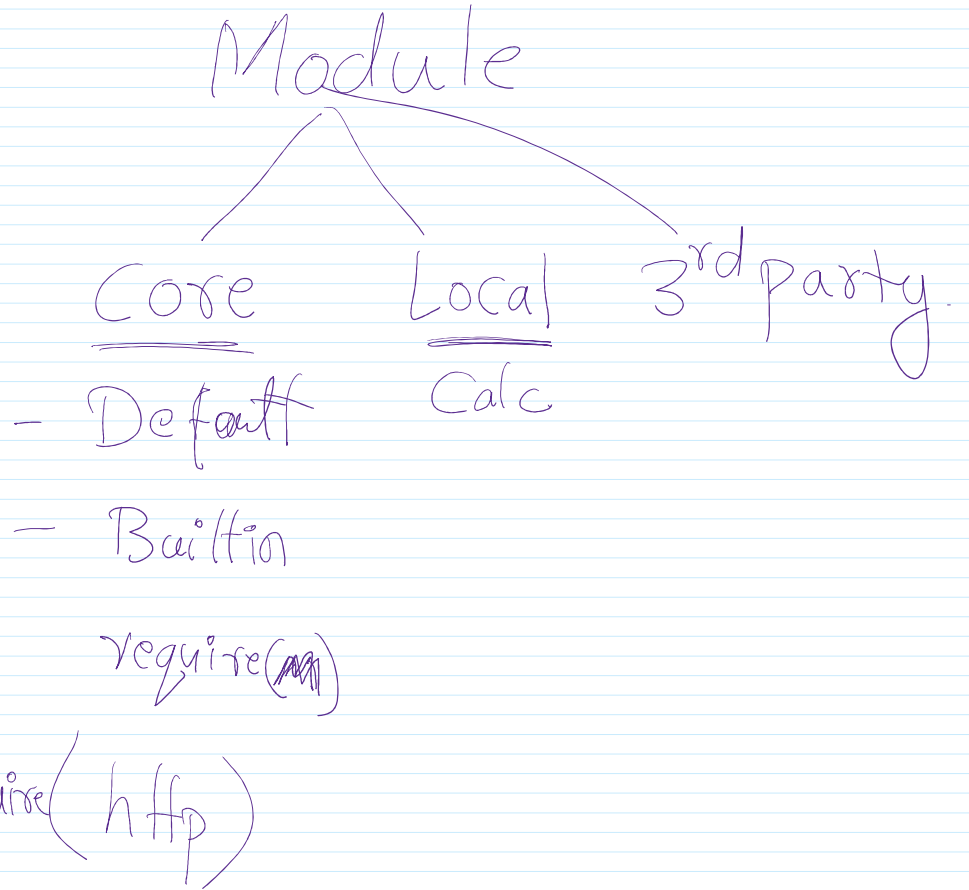 Module
Core Local 3rd party.
- Default Calc
- Builtin
require( )
uire(http)